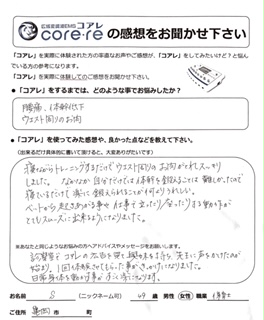 広域変調波EMS コアレ
core・re の感想をお聞かせ下さい
「コアレ」を実際に体験された方の率直なお声やご感想が、「コアレ」をしてみたいけど？と悩んでいる方の参考になります。
「コアレ」を実際に体験してのご感想をお聞かせください。
●「コアレ」をするまでは、どのようなことでお悩みでしたか？
腰痛、体幹低下
ウエスト周りのお肉
●「コアレ」を使ってみた感想や、良かった点などを教えて下さい。
(出来るだけ具体的に書いて頂けると、大変ありがたいです)
寝ながらトレーニングするだけでウエスト周りのお肉がとれスッキリ
しました。なかなか自分だけでは体幹を鍛えることは難しかったので
寝ているだけで楽に鍛えられることが何よりうれしい。
ベットから起きあがる事や仕事で立ったり座ったりする動作が
とてもスムーズに出来るようになりました。
※あなたと同じようなお悩みの方へアドバイスやメッセージをお願いします。
始まり、1回体験させてもらった事がきっかけになりました。
日常身体を動かす事がすごく楽になります。
お名前 S (ニックネーム可) 49歳 男性 女性 職業
ご住所 市 町